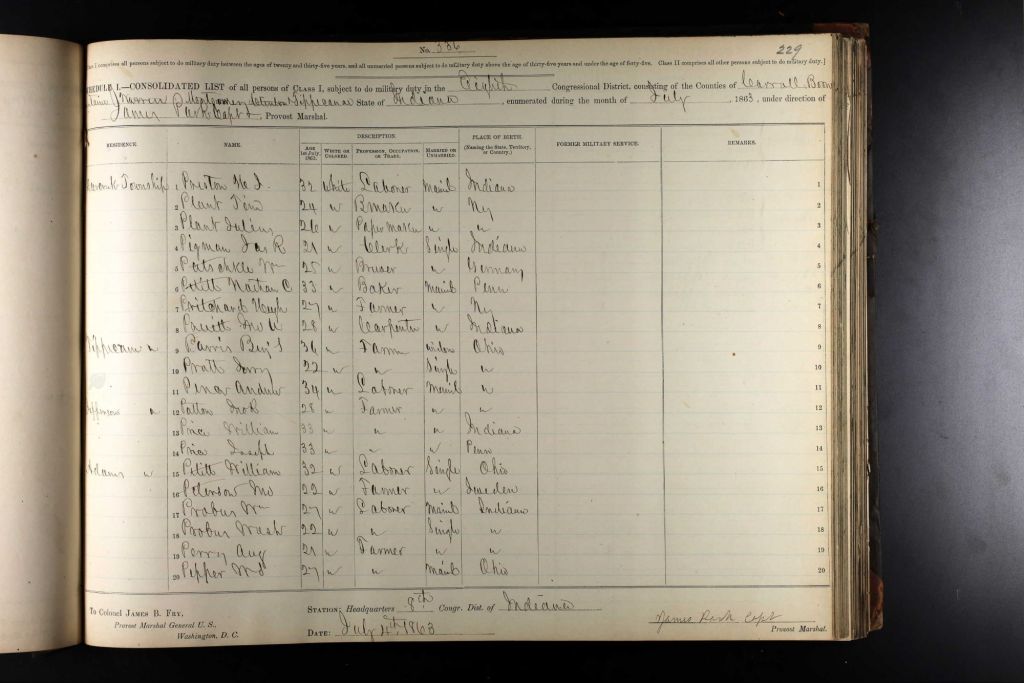 No. 336
229
Class I comprises all persons subject to do military duty between the ages of twenty and thirty-five years, and all unmarried persons subject to do military duty above the age of thirty-five years and under the age of forty-five. Class II comprises all other persons subject to do military duty.]
SCHEDULE I.—CONSOLIDATED LIST of all persons of CLASS I, subject to do military duty in the Eighth Congressional District, consisting of the Counties of Carroll, Boone
Warren Montgomery Clinton Tippecanoe State of Indiana, enumerated during the month of July, 1863, under direction of
James Park Capt &, Provost Marshal.
RESIDENCE. NAME. DESCRIPTION. PLACE OF BIRTH. FORMER MILITARY SERVICE. REMARKS.
AGE 1st July, 1863. WHITE OR COLORED. PROFESSION, OCCUPATION, OR TRADE. MARRIED OR UNMARRIED. (Naming the State, Territory, or Country.)
Township 1 Preston 32 White Laborer Marid Indiana 1
2 Plant 24 " " Ny 2
3 Plant Julius 26 " Paper maker " " 3
4 Pigman Jas R 21 " Clerk Single Indiana 4
5 Patschkle Wm 25 " Bruwer " Germany 5
6 Petitt Nathan C 33 " Baker Marid Penn 6
7 Pritchard Hugh 27 " Farmer " Ny 7
8 Jno 28 " Carpenter " Indiana 8
Tippecanoe " 9 Parris Benj S 34 " Farm widow Ohio 9
10 Pratt Jerry 22 " " Single " 10
11 Andrew 34 " Laborer Marid " 11
Jefferson " 12 Patton Jno R 28 " Farmer " " 12
13 Price William 33 " " " Indiana 13
14 Price Joseph 33 " " " Penn 14
Adams " 15 Petitt William 32 " Laborer Single Ohio 15
16 Peterson Jno 22 " Farmer " Sweden 16
17 Probus Wm 27 " Laborer Marid Indiana 17
18 Probus Wash 22 " " Single " 18
19 Perry Aug 21 " Farmer " " 19
20 Pepper Wm 27 " " Marid Ohio 20
To Colonel JAMES B. FRY,
Provost Marshal General U. S.,
Washington, D. C.
STATION: Headquarters 8th Congr. Dist. of Indiana
DATE: July 4th, 1863
James Park Capt
Provost Marshal.